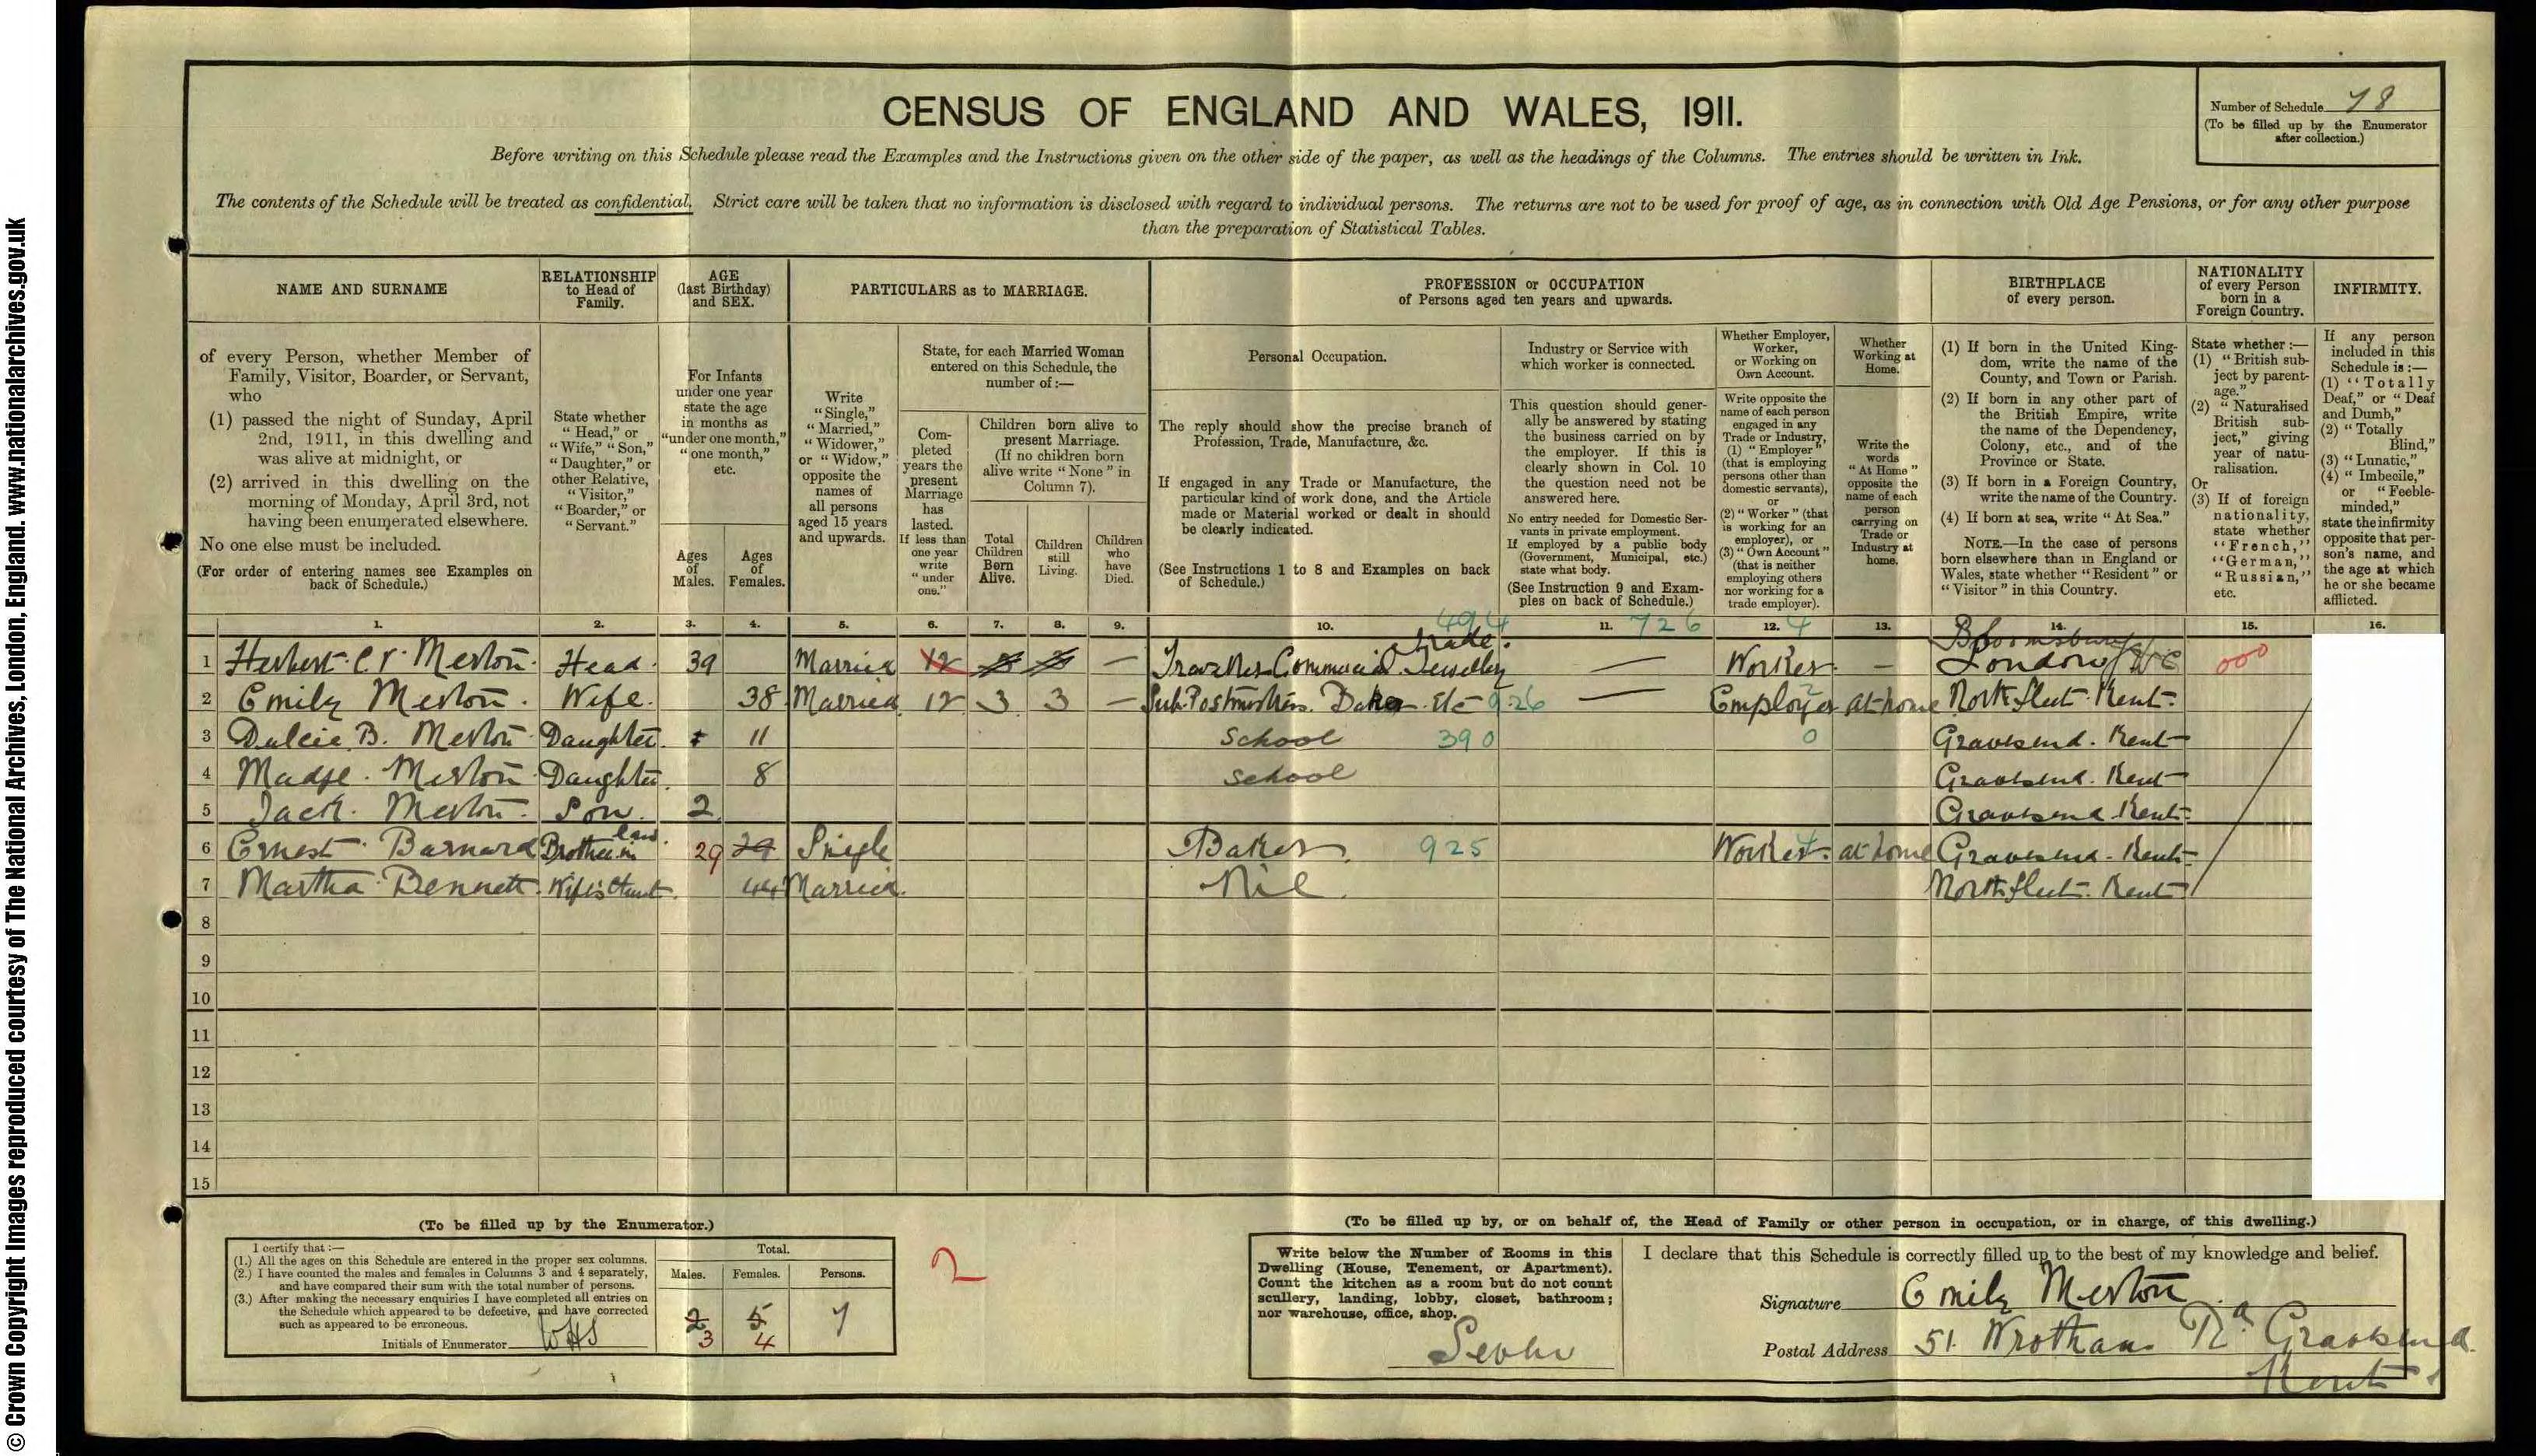 © Crown Copyright Images reproduced courtesy of The National Archives, London, England. www.nationalarchives.gov.uk
CENSUS OF ENGLAND AND WALES, 1911.
Number of Schedule 78
(To be filled up by the Enumerator
after collection.)
Before writing on this Schedule please read the Examples and the Instructions given on the other side of the paper, as well as the headings of the Columns. The entries should be written in Ink.
The contents of the Schedule will be treated as confidential. Strict care will be taken that no information is disclosed with regard to individual persons. The returns are not to be used for proof of age, as in connection with Old Age Pensions, or for any other purpose
than the preparation of Statistical Tables.
NAME AND SURNAME
of every Person, whether Member of
Family, Visitor, Boarder, or Servant,
who
(1) passed the night of Sunday, April
2nd, 1911, in this dwelling and
was alive at midnight, or
(2) arrived in this dwelling on the
morning of Monday, April 3rd, not
having been enumerated elsewhere.
No one else must be included.
(For order of entering names see Examples on
back of Schedule.)
RELATIONSHIP
to Head of
Family.
State whether
"Head," or
"Wife," "Son,"
"Daughter," or
other Relative,
"Visitor,"
"Boarder," or
"Servant."
AGE
(last Birthday)
and SEX.
For Infants
under one year
state the age
in months as
"under one month,"
"one month,"
etc.
Ages
of
Males.
Ages
of
Females.
PARTICULARS as to MARRIAGE.
Write
"Single,"
"Married,"
"Widower,"
or "Widow,"
opposite the
names of
all persons
aged 15 years
and upwards.
State, for each Married Woman
entered on this Schedule, the
number of:—
Com-
pleted
years the
present
Marriage
has
lasted.
If less than
one year
write
"under
one."
Children born alive to
present Marriage.
(If no children born
alive write "None" in
Column 7).
Total
Children
Born
Alive.
Children
still
Living.
Children
who
have
Died.
PROFESSION or OCCUPATION
of Persons aged ten years and upwards.
Personal Occupation.
The reply should show the precise branch of
Profession, Trade, Manufacture, &c.
If engaged in any Trade or Manufacture, the
particular kind of work done, and the Article
made or Material worked or dealt in should
be clearly indicated.
(See Instructions 1 to 8 and Examples on back
of Schedule.)
Industry or Service with
which worker is connected.
This question should gener-
ally be answered by stating
the business carried on by
the employer. If this is
clearly shown in Col. 10
the question need not be
answered here.
No entry needed for Domestic Ser-
vants in private employment.
If employed by a public body
(Government, Municipal, etc.)
state what body.
(See Instruction 9 and Exam-
ples on back of Schedule.)
Whether Employer,
Worker,
or Working on
Own Account.
Write opposite the
name of each person
engaged in any
Trade or Industry,
(1) "Employer"
(that is employing
persons other than
domestic servants),
or
(2) "Worker" (that
is working for an
employer), or
(3) "Own Account"
(that is neither
employing others
nor working for a
trade employer).
Whether
Working at
Home.
Write the
words
"At Home"
opposite the
name of each
person
carrying on
Trade or
Industry at
home.
BIRTHPLACE
of every person.
(1) If born in the United King-
dom, write the name of the
County, and Town or Parish.
(2) If born in any other part of
the British Empire, write
the name of the Dependency,
Colony, etc., and of the
Province or State.
(3) If born in a Foreign Country,
write the name of the Country.
(4) If born at sea, write "At Sea."
NOTE.—In the case of persons
born elsewhere than in England or
Wales, state whether "Resident" or
"Visitor" in this Country.
NATIONALITY
of every Person
born in a
Foreign Country.
State whether:—
(1) "British sub-
ject by parent-
age."
(2) "Naturalised
British sub-
ject," giving
year of natu-
ralisation.
Or
(3) If of foreign
nationality,
state whether
"French,"
"German,"
"Russian,"
etc.
INFIRMITY.
If any person
included in this
Schedule is:—
(1) "Totally
Deaf," or "Deaf
and Dumb,"
(2) "Totally
Blind,"
(3) "Lunatic,"
(4) "Imbecile,"
or "Feeble-
minded,"
state the infirmity
opposite that per-
son's name, and
the age at which
he or she became
afflicted.
1. 2. 3. 4. 5. 6. 7. 8. 9. 10. 494 11. 726 12. 4 13. 14. 15. 16.
1 Herbert Merton. Head. 39 Married 12 3 3 — Traveller Commercial Jewellery trade. — Worker. — Bloomsbury London WC 000
2 Emily Merton. Wife. 38 Married 12 3 3 — Sub-Postmistress. Baker Etc 926 — Employer at home Northfleet. Kent.
3 Dulcie B. Merton Daughter 11 School 390 0 Gravesend. Kent
4 Madge. Merton Daughter 8 School Gravesend. Kent
5 Jack. Merton. Son. 2 Gravesend Kent
6 Ernest Barnard Brother in law 29 29 Single Baker. 925 Worker. at home Gravesend. Kent
7 Martha Bennett. Wife's Aunt 44 Married. Nil. Northfleet. Kent
8
9
10
11
12
13
14
15
(To be filled up by the Enumerator.)
I certify that:—
(1.) All the ages on this Schedule are entered in the proper sex columns.
(2.) I have counted the males and females in Columns 3 and 4 separately,
and have compared their sum with the total number of persons.
(3.) After making the necessary enquiries I have completed all entries on
the Schedule which appeared to be defective, and have corrected
such as appeared to be erroneous.
Initials of Enumerator WHS
Total.
Males. Females. Persons.
2 5 7
3 4
2
(To be filled up by, or on behalf of, the Head of Family or other person in occupation, or in charge, of this dwelling.)
Write below the Number of Rooms in this
Dwelling (House, Tenement, or Apartment).
Count the kitchen as a room but do not count
scullery, landing, lobby, closet, bathroom;
nor warehouse, office, shop.
Seven
I declare that this Schedule is correctly filled up to the best of my knowledge and belief.
Signature Emily Merton
Postal Address 51. Wrotham Rd. Gravesend
Kent